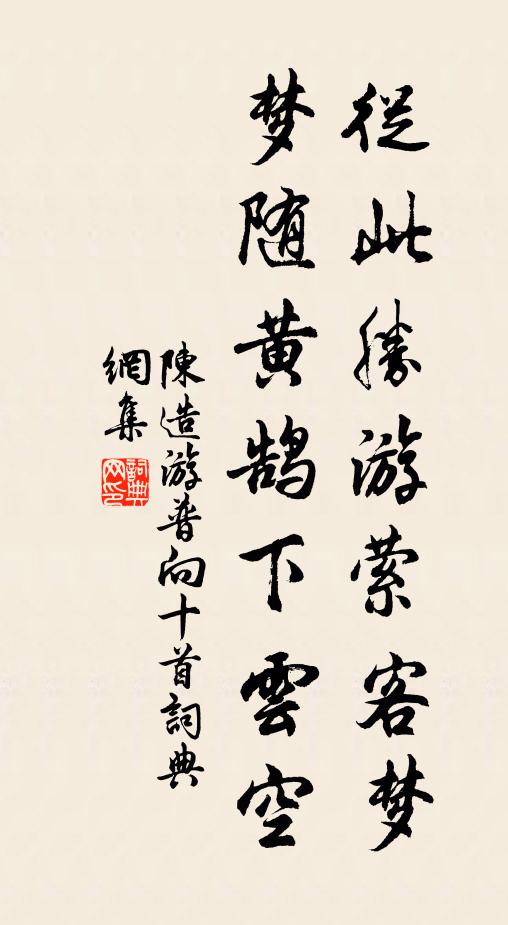 從此勝游萦客梦
梦随黄鹄下雲空
陳造游普向十首詞典
網集
詞典
网印